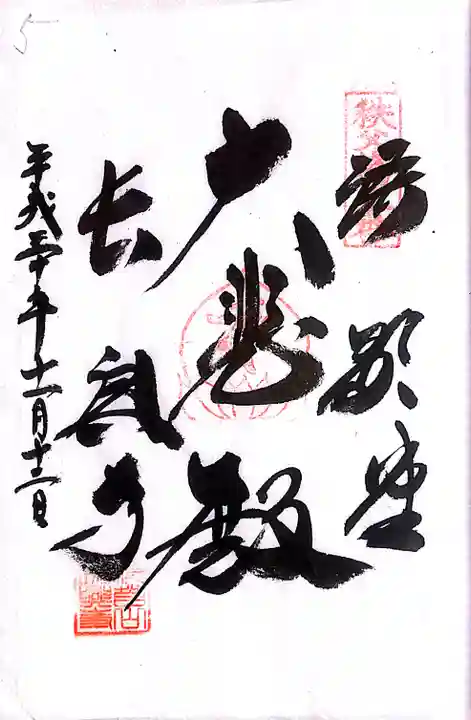 5
秩父
語歌堂
大悲殿
長興寺
平成三十年十一月十三日